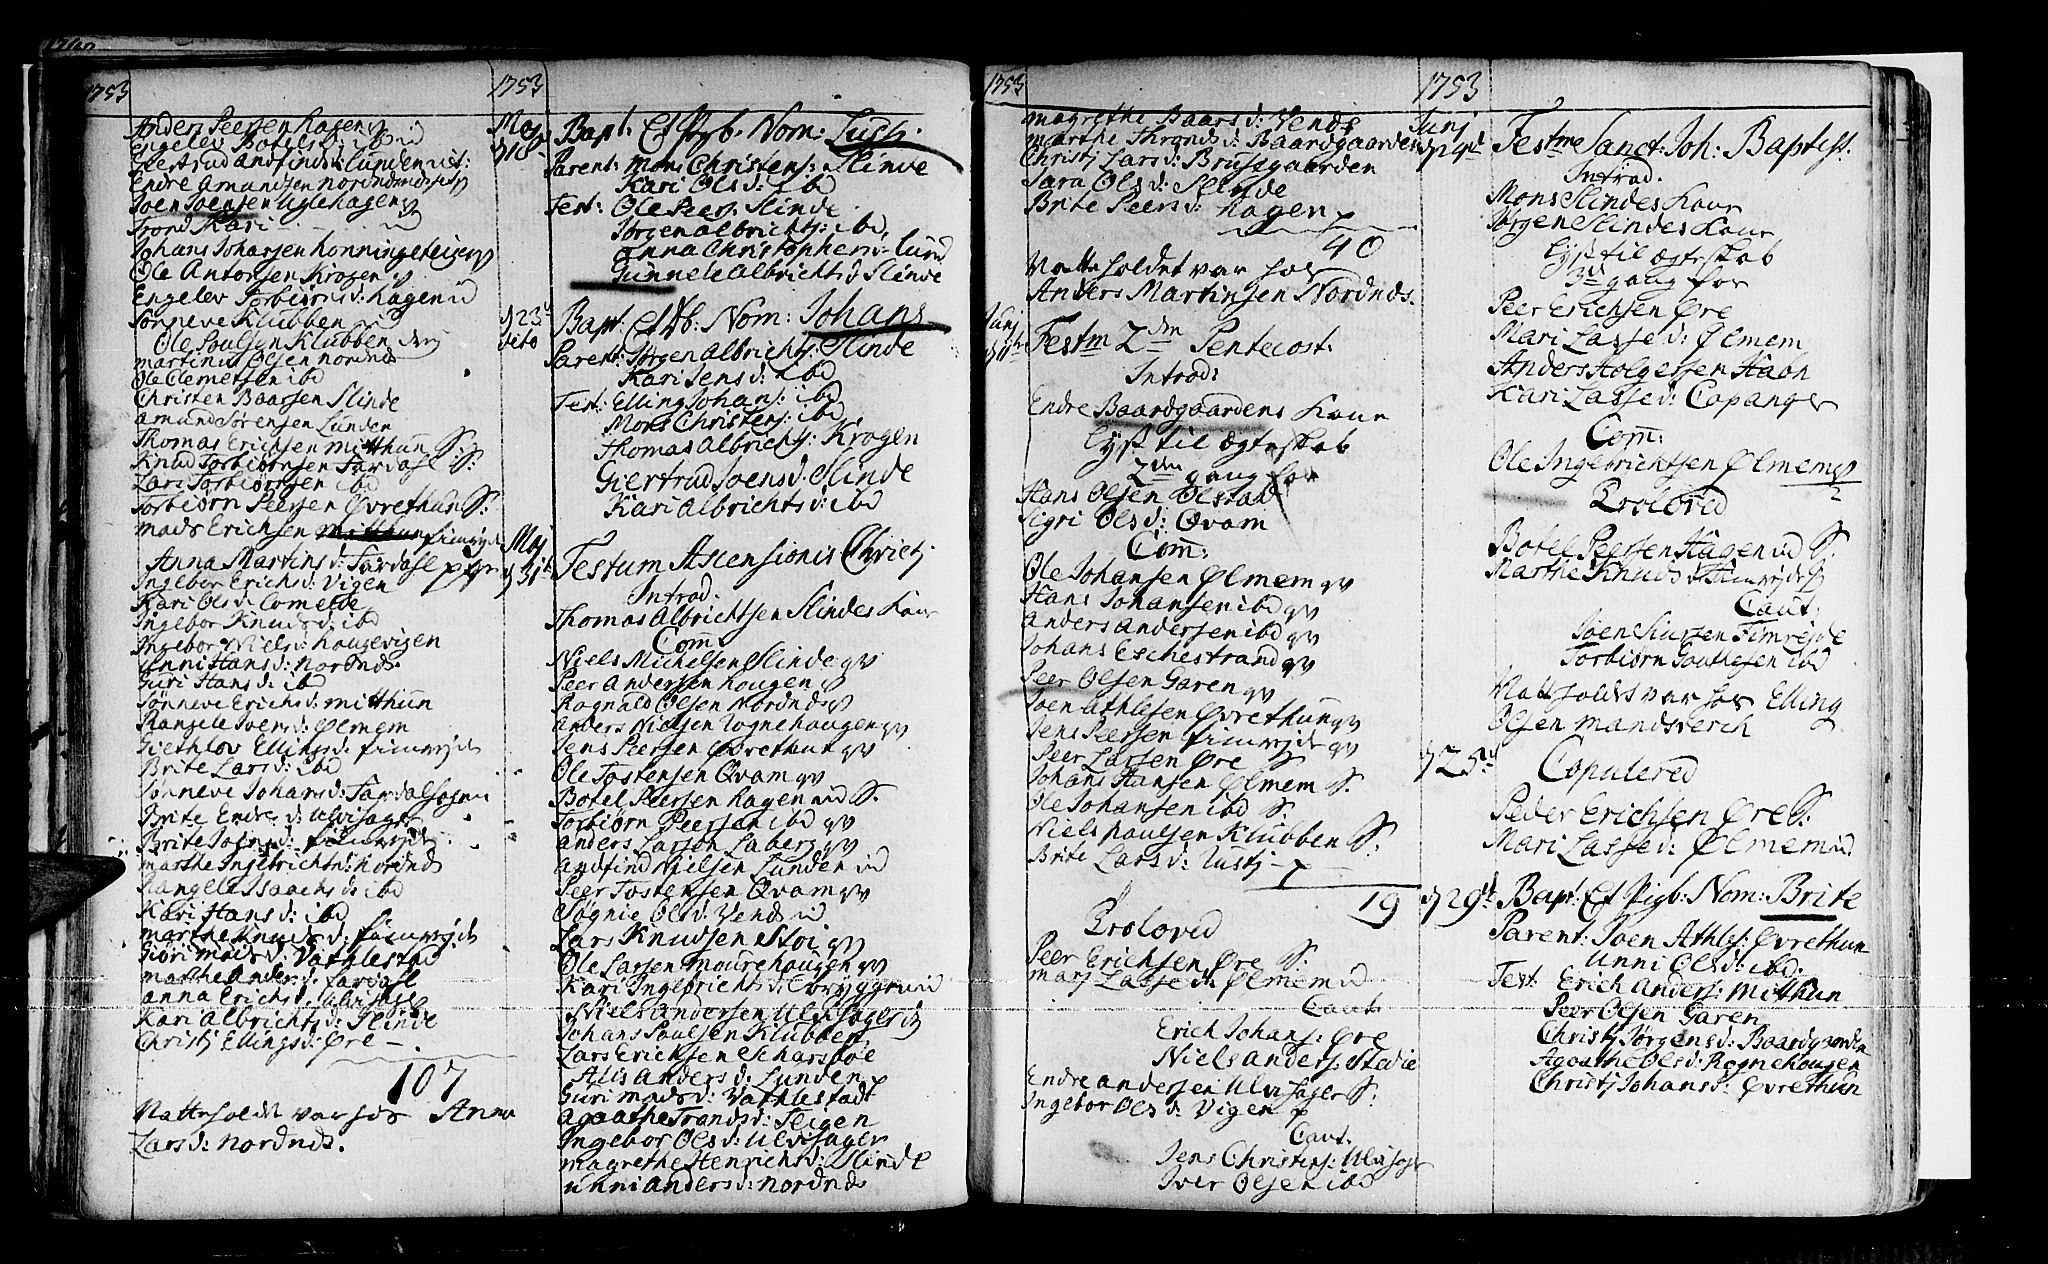 1753
Anders Peersen Hagen
Engelev Botels d: ibid
Giertrud Andfinds d: Lunden ut:
Endre Amundsen Nordnæs
Joen Joensen Uglehagen
Trond Kari
Johans Johansen Honningsteigen
Ole Antonsen Krogen
Engelev Torbiørns d: Hagen ud
Sønneve Klubben
Ole Poulsen Klubben
Martinus Olsen Nordnes
Ole Clemetsen ibd
Christen Baarsen Slinde
Amund Sørensen Lunden
Thomas Erichsen Mitthun S:
Knud Torbiørnsen Fardahl S:
Lars Torbiørnsen ibd
Torbiørn Peersen Øvrethun S:
Mads Erichsen Fimreyde
Anna Martins d: Fardahl
Ingebor Erichs d: Vigen
Kari Ols d: Lomelde
Ingebor Knuds d: ibd
Ingebor Niels d: Haugevigen
Unni Hans d: Nordnæs
Guri Hans d: ibd
Sønneve Erichs d: Mitthun
Rangele Joens d: Ølmem
Giethlov Ellings d: Fimreyde
Brite Lars d: ibd
Sønneve Johans d: Fardal
Brite Endre d: Ulvisager
Brite Joens d: Fimreyde
Marthe Ingebrichts d: Nordnæs
Rangele Isaachs d: ibd
Kari Hans d: ibd
Marthe Knuds d: Fimreyde
Giøri Mads d: Vathlestad
Marthe Anders d: Fardahl
Anna Erichs d: Ulvisager
Kari Albrichts d: Slinde
Christj Ellings d: Øre
107
Natteholdet var hos Anna
Lars d: Nordnæs.
1753
Maj
d 18 Bapt: Et Pigb. Nom: Lusti.
Parent: Mons Christens: Slinde
Kari Ols d: ibd
Test: Ole Peers. Slinde
Jørgen Albrichts: ibd,
Anna Christophers d: Lund
Gunnele Albrichts d Slinde
d 23 dito Bapt: Et Db: Nom: Johans
Parent: Jørgen Albrichts: Slinde
Kari Jens d: ibd
Test: Elling Johans: ibd
Mons Christens: ibd
Thomas Albrichts: Krogen
Giertrud Joens d. Slinde
Kari Albrichts d: ibd
Maj
d 31 Festum Ascensionis Christj.
Introd.
Thomas Albrichtsen Slindes Kone
Com:
Niels Michelsen Slinde qv
Peer Andersen Hougen
Ragnald Olsen Nordnæs
Anders Nielsen Rognehaugen qv
Jens Peersen Øvrethun qv
Ole Tostensen Qvam qv
Botel Peersen Hagen ud S.
Torbiørn Peersen ibd qv
Anders Larsen Labers qv
Andfind Nielsen Lunden ud
Peer Tostensen Qvam qv
Søgnie Ols d: Vends ud
Lars Knudsen Stoi qv
Ole Larsen Mourehaugen qv
Kari Ingebrichts d: Loryggen ud
Niels Andersen Ulvisager
Johans Poulsen Klubben
Lars Erichsen Scharsbøe
Alis Anders d: Lunden
Guri Mads d: Vathlestad
Agoathe Tronds d: Teigen
Ingebor Ols d: Ulvisager
Magrethe Henrichs d: Slinde
Unni Anders d: Nordnæs
1753
Magrethe Baars d: Vends
Marthe Thronds d: Baardgaarden
Christj Lars d: Brusegaarden
Sara Ols d: Slinde
Brite Peers d: Hagen
40
Natteholdet var hos
Anders Martinsen Nordnæs.
Junj
Festm 2dm Pentecost:
Introd:
Endre Baardgaardens Kone
Lyst til Ægteskab
2den gang for
Hans Olsen Ølstad
Sigri Ols d: Qvam
Com:
Ole Johansen Ølmem qv
Hans Johansen ibd qv
Anders Andersen ibd qv
Johans Eschestrand qv
Peer Olsen Garen qv
Joen Athlesen Øvrethun qv
Jens Peersen Fimreyde qv
Peer Larsen Øre S
Johans Hansen Ølmem S.
Ole Johansen ibd S:
Niels Paulsen Klubben S:
Brite Lars d: Justj
19
Proloved
Peer Erichsen Øre S:
Marj Lasse d: Ølmem ud
Caut
Erich Johans: Øre
Niels Anders: Stedie
Endre Andersen Ulvisager S:
Ingebor Ols d: Vigen
Caut.
Jens Christens: Ulvisager
Iver Olsen ibd
1753
Junj
d 24d Festme Sanct: Joh: Baptist.
Introd.
Mons Slindes Kone
Jørgen Slindes Kone
Lyst til Ægteskab
3d gang for
Peer Erichsen Øre
Mari Lasse d: Ølmem
Anders Holgersen Habn
Kari Lasse d: Copanger
Com:
Ole Ingebrichtsen Ølmem qv
2
Proloved
Botel Peersen Hagen ud S.
Marthe Knuds d: Fimreyde
Caut:
Joen Siursen Fimreyde
Torbiørn Gouthesen ibd
Natteholdet var hos Elling
Olsen Mandsverch
d 25d Copulered
Peder Erichsen Øre S:
Mari Lasse d: Ølmem ud.
d 29d Bapt: Et Pigb: Nom: Brite
Parent: Joen Athles: Øvrethun
Unni Ols d: ibd.
Test: Erich Anders: Mitthun
Peer Olsen Garen
Christj Jørgens d: Baardgaarden
Agoathe Ols d: Rognehougen
Christj Johans d: Øvrethun